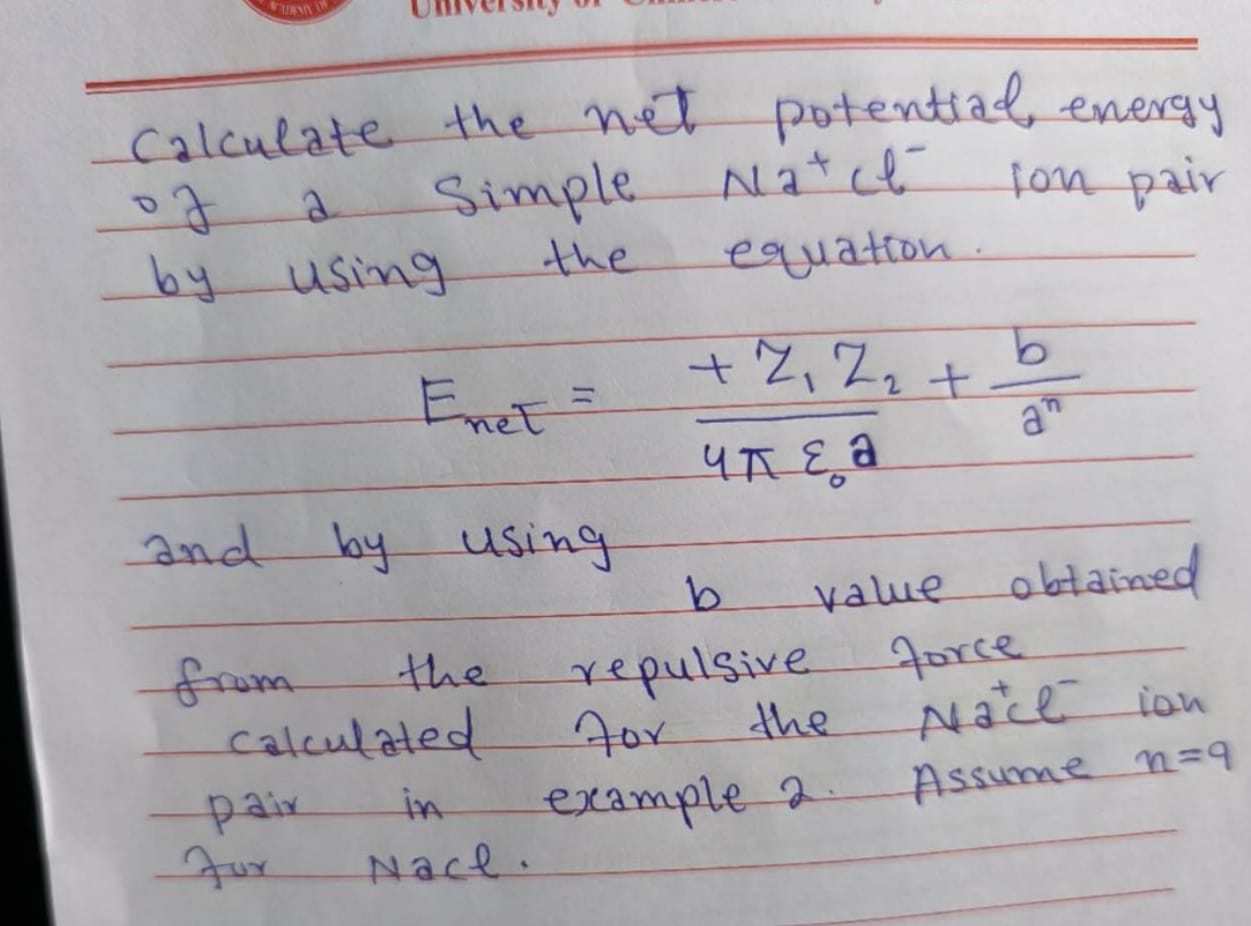 ACADEMY OF
University of
Calculate the net potential energy
of a Simple Na⁺Cl⁻ ion pair
by using the equation.
E_net = +Z₁Z₂/4πε₀a + b/aⁿ
and by using
b value obtained
from the repulsive force
calculated for the Na⁺Cl⁻ ion
pair in example 2. Assume n=9
for Nacl.